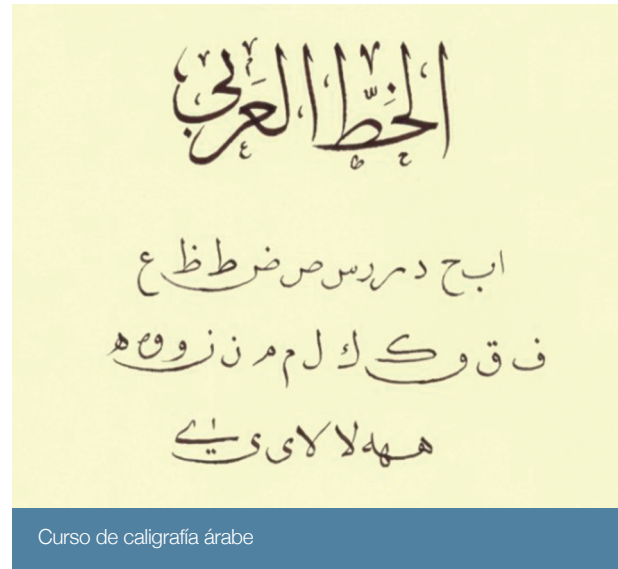 الخط العربي
ا ب ح د ر ر س ص ض ط ظ ع
ف ق و ك ك ل م م ن ز و و ه ه
ه هه لا لا ی ی ے
Curso de caligrafía árabe